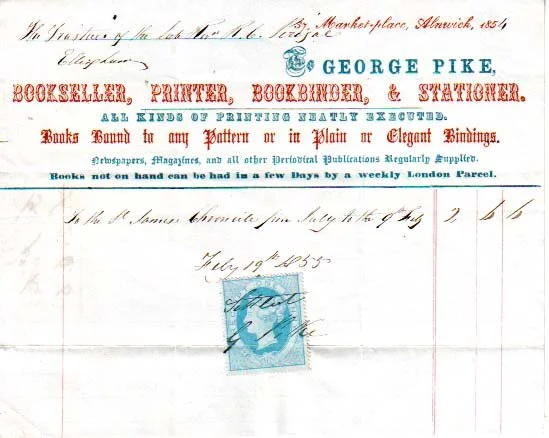 The Trustees of the late Revd R. C.
37, Market-place, Alnwick, 1854
Ellingham
To GEORGE PIKE,
BOOKSELLER, PRINTER, BOOKBINDER, & STATIONER.
ALL KINDS OF PRINTING NEATLY EXECUTED.
Books Bound to any Pattern or in Plain or Elegant Bindings.
Newspapers, Magazines, and all other Periodical Publications Regularly Supplied.
Books not on hand can be had in a few Days by a weekly London Parcel.
To the St James Chronicle from July to the 9th Feby 2 6 6
Feby 19th 1855
Settled
G Pike